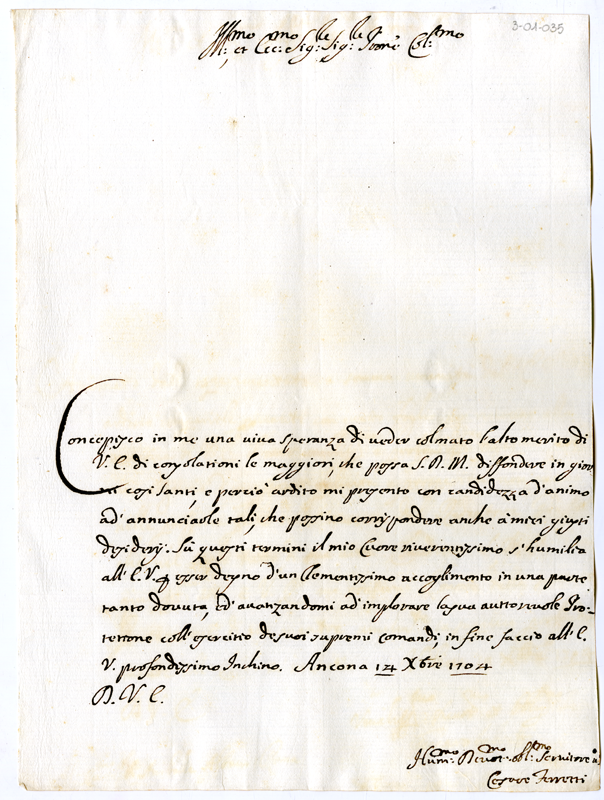 3-01-035
Ill:mo et Ecc:mo Sig:re Sig:re Prone Col:mo
Concepisco in me una viva speranza di veder colmato l'alto merito di
V. E. di consolationi le maggiori, che possa S. D. M. diffondere in gior
ni così santi, e perciò ardito mi presento con candidezza d'animo
ad' annunciarle tali, che possino corrispondere anche à miei giusti
desiderij. Sù questi termini il mio Cuore riverentissimo s'humilia
all' E. V. p esser degno d'un Clementissimo accoglimento in una parte
tanto dovuta, ed' avanzandomi ad' implorare la sua auttorevole Pro-
tettione coll' esercitio de suoi supremi comandi, in fine faccio all' E.
V. profondissimo Inchino. Ancona 14 Xbre 1704
D. V. E.
Hum:mo Devot:mo obl:mo Servitore
Cesare Ferretti